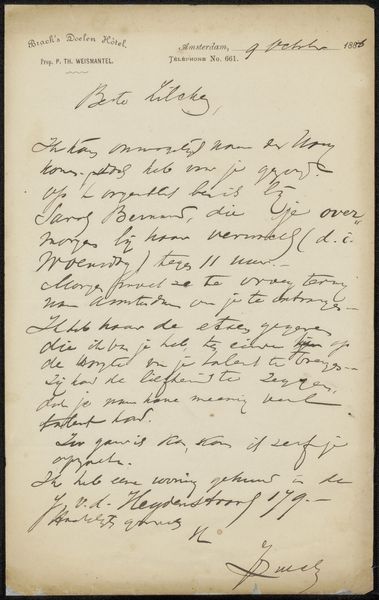 Brack's Doelen Hôtel.
Prop. P. TH. WEISMANTEL.
Amsterdam, 9 October 1886
TELEPHONE No. 661.
Beste Zilcken,
Ik kan onmogelijk naar den Haag
komen. heb van je
op 't oogenblik ben ik bij
Sarah Bernard, die je over
morgen bij haar verwacht (d.i.
Woensdag) tegen 11 uur.
Morgen moet ze te vroeg terug
naar Amsterdam om je te ontvangen
Ik heb haar de etsen gegeven
die ik van je heb, ten einde haar op
de hoogte van je talent te brengen
Zij had de liefheid te zeggen,
dat je naar hare meening veel
talent had.
Zoo gauw ik kan, kom ik zelf je
opzoeken.
Ik heb eene woning gehuurd in de
J. v.d. Heydenstraat 179.
Hartelijk gegroet